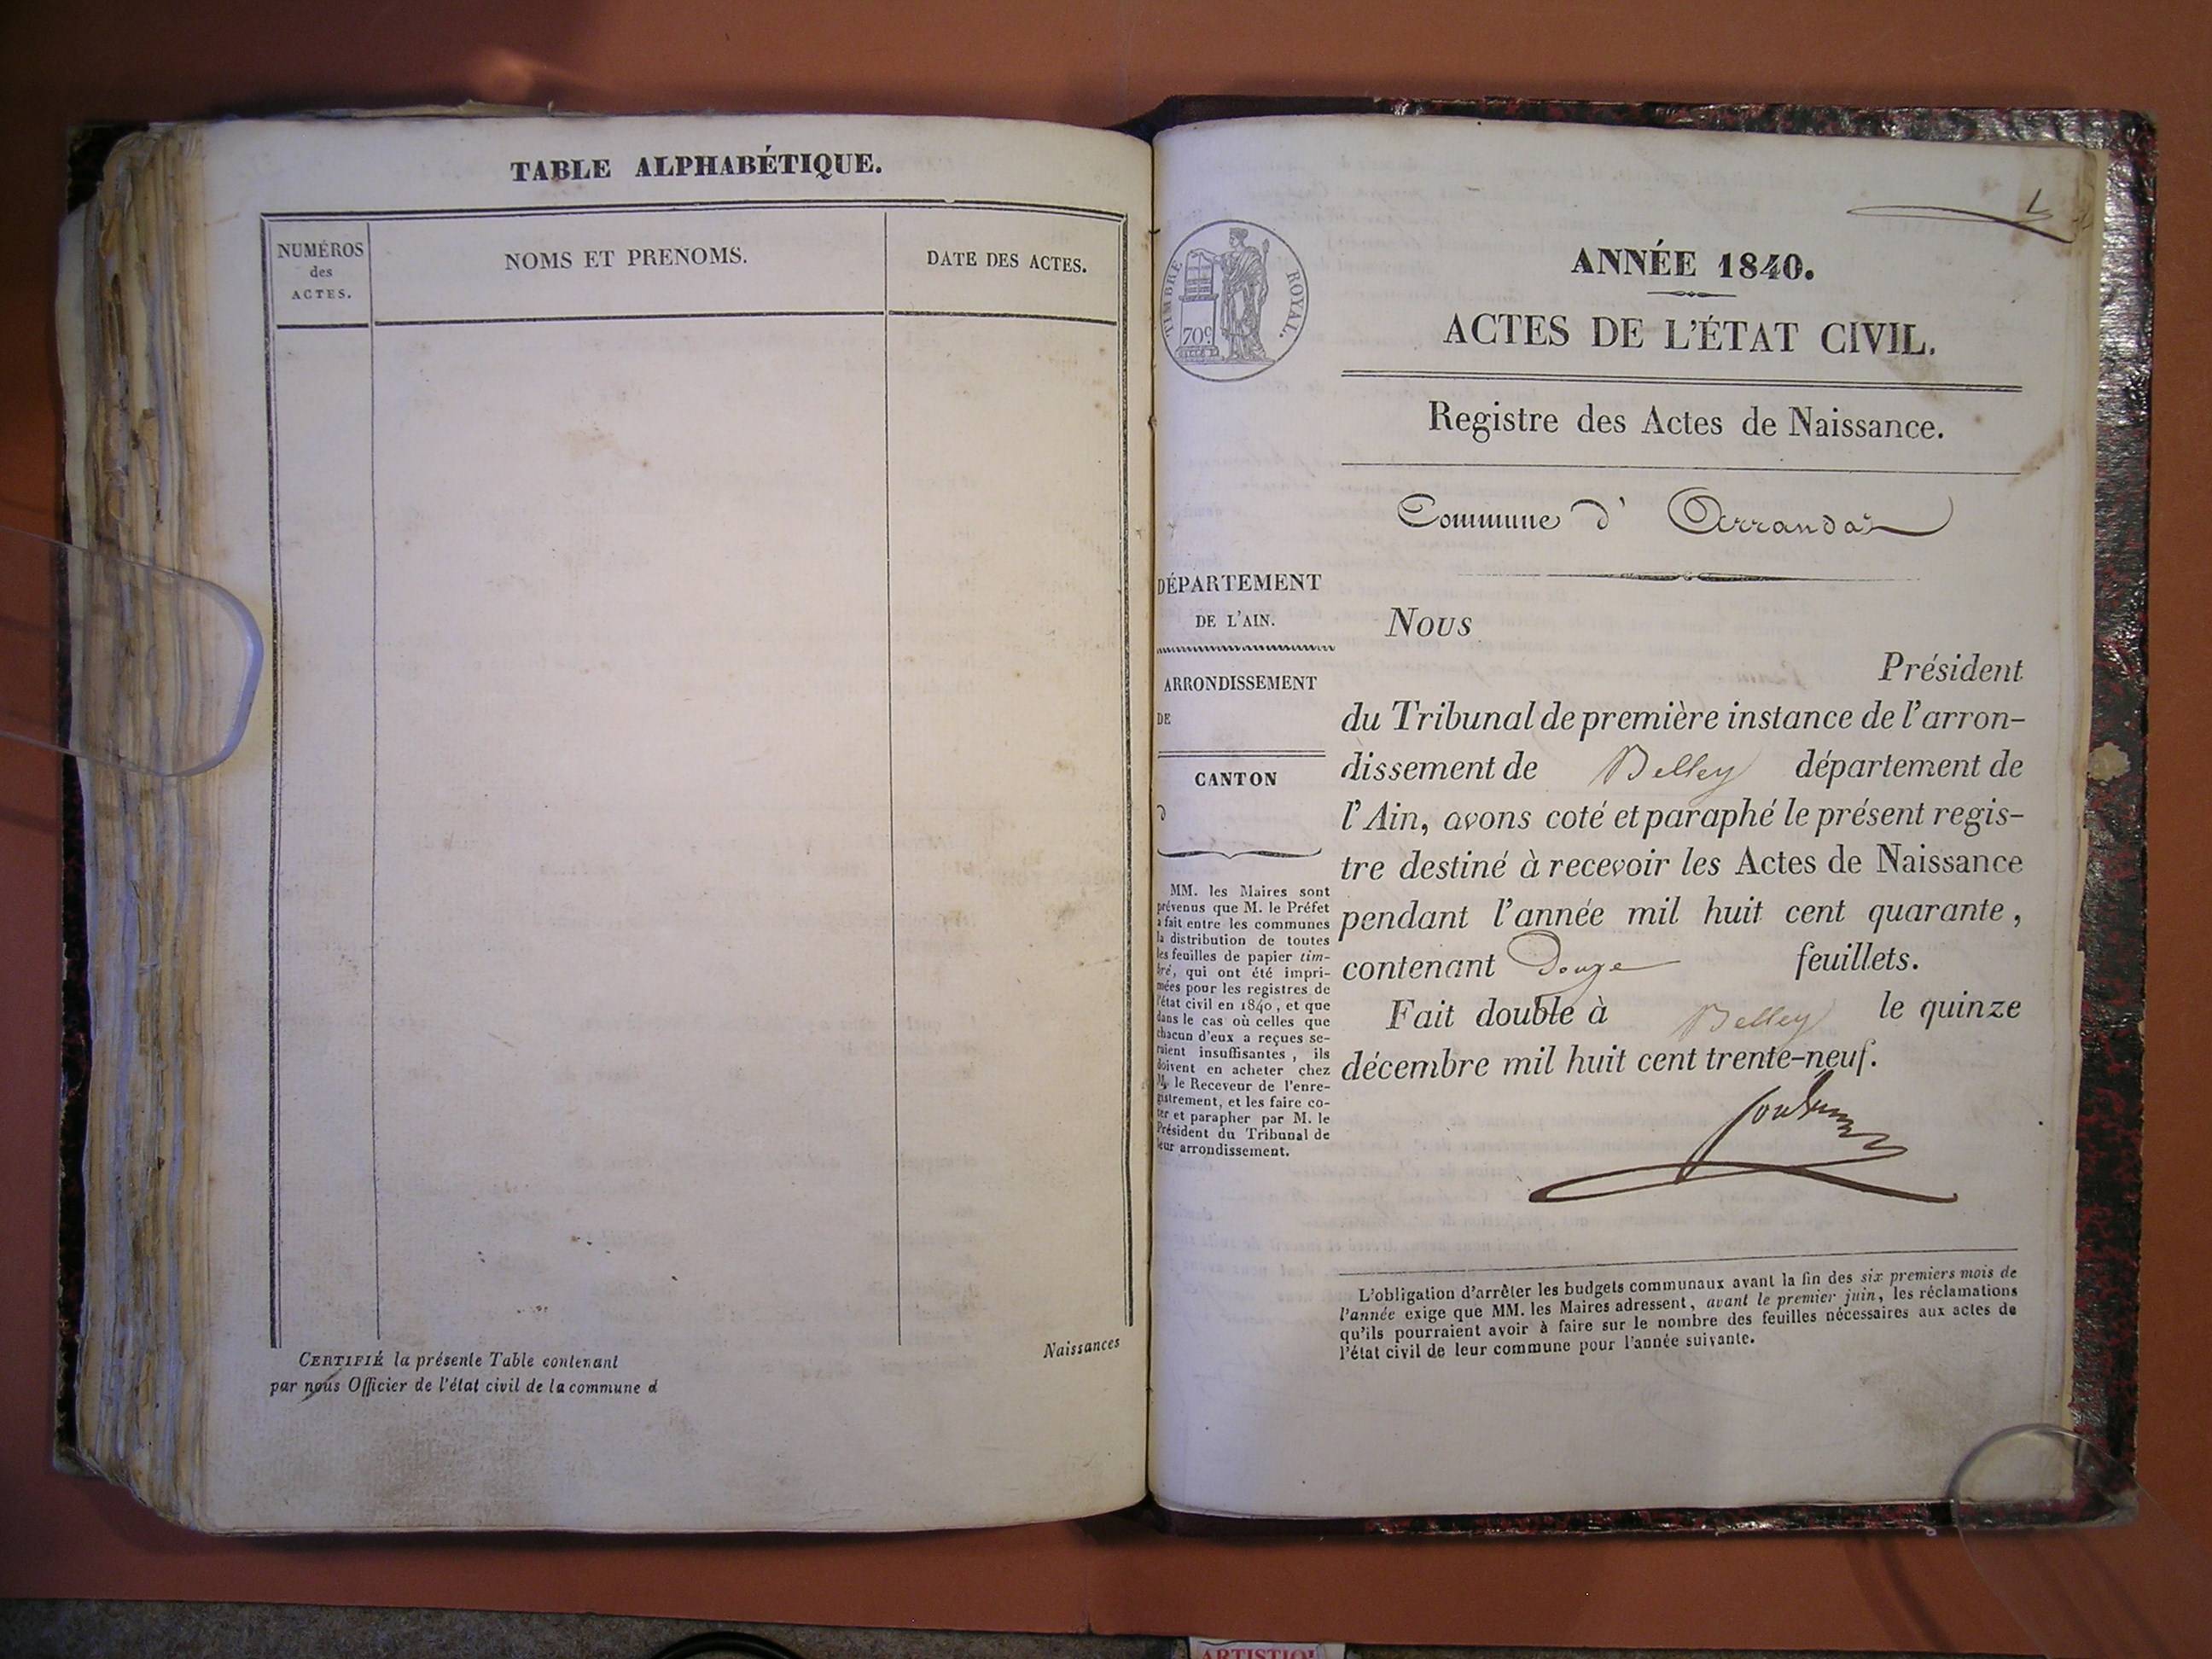 TABLE ALPHABÉTIQUE.
NUMÉROS
des
ACTES.
NOMS ET PRENOMS.
DATE DES ACTES.
CERTIFIÉ la présente Table contenant
par nous Officier de l'état civil de la commune d
Naissances
TIMBRE ROYAL.
70c
ANNÉE 1840.
ACTES DE L'ÉTAT CIVIL.
Registre des Actes de Naissance.
Commune d' Arrandas
DÉPARTEMENT
DE L'AIN.
ARRONDISSEMENT
DE
CANTON
d
MM. les Maires sont
prévenus que M. le Préfet
a fait entre les communes
la distribution de toutes
les feuilles de papier tim-
bré, qui ont été impri-
mées pour les registres de
l'état civil en 1840, et que
dans le cas où celles que
chacun d'eux a reçues se-
raient insuffisantes, ils
doivent en acheter chez
M. le Receveur de l'enre-
gistrement, et les faire co-
ter et parapher par M. le
Président du Tribunal de
leur arrondissement.
Nous
Président
du Tribunal de première instance de l'arron-
dissement de Belley département de
l'Ain, avons coté et paraphé le présent regis-
tre destiné à recevoir les Actes de Naissance
pendant l'année mil huit cent quarante,
contenant Douze feuillets.
Fait double à Belley le quinze
décembre mil huit cent trente-neuf.
L'obligation d'arrêter les budgets communaux avant la fin des six premiers mois de
l'année exige que MM. les Maires adressent, avant le premier juin, les réclamations
qu'ils pourraient avoir à faire sur le nombre des feuilles nécessaires aux actes de
l'état civil de leur commune pour l'année suivante.